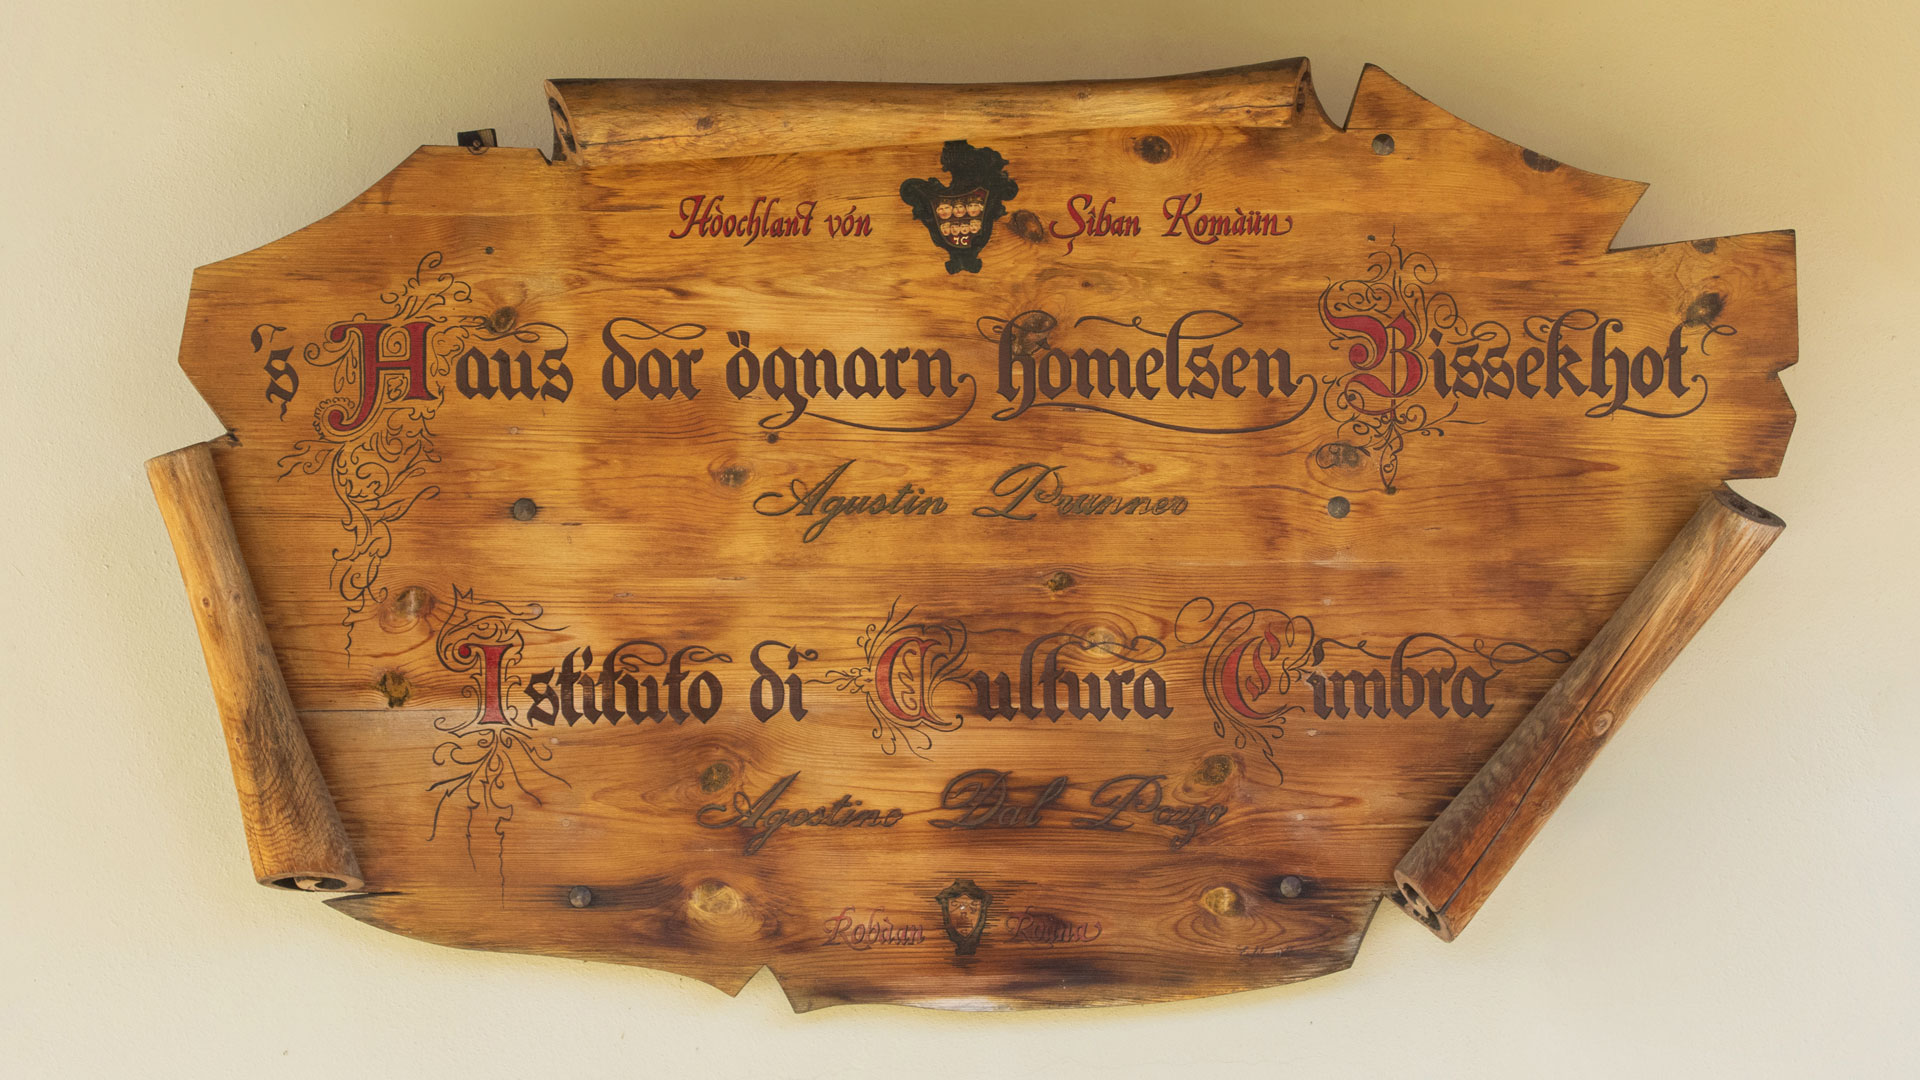 Hòochlant vón Şiban Komàün
7C
's Haus dar ögnarn homelsen Bissekhot
Agustin Prunner
Istituto di Cultura Cimbra
Agostino Dal Pozzo
Robaan Roana